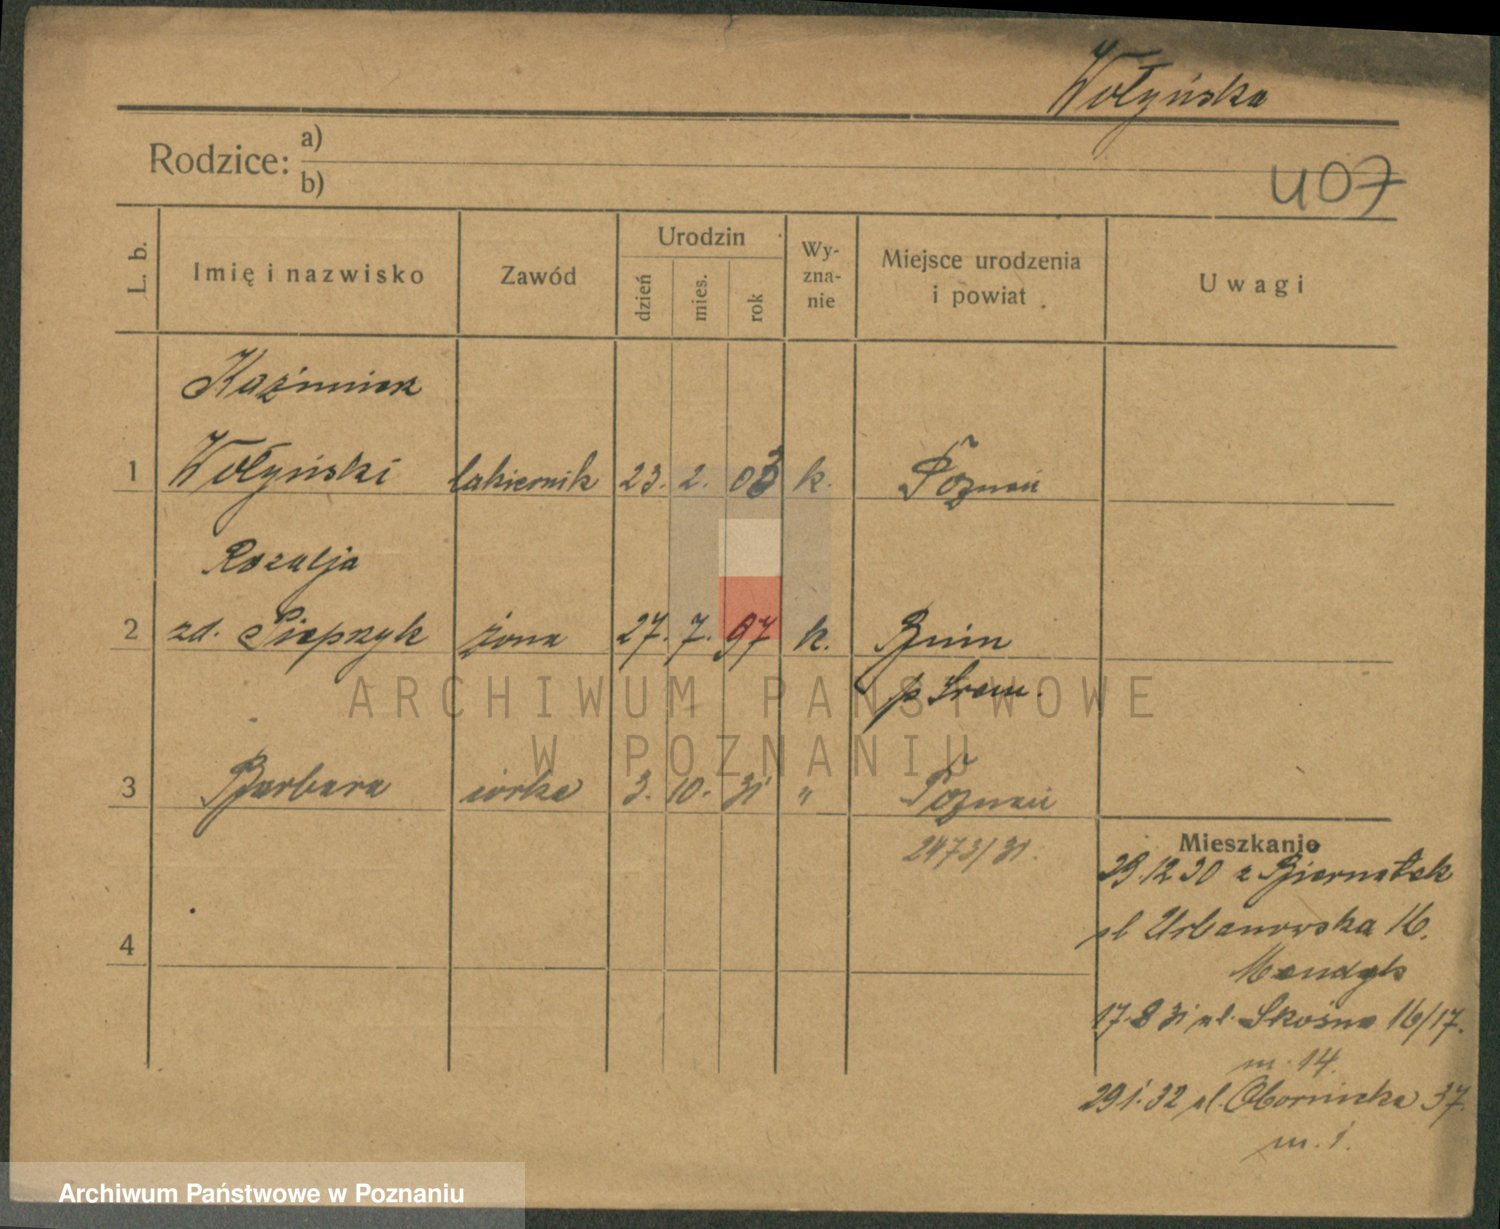 Wołyńska
Rodzice: a)
b)
407
L. b. Imię i nazwisko Zawód Urodzin dzień mies. rok Wy-zna-nie Miejsce urodzenia i powiat Uwagi
Kaźmierz
1 Wołyński lakiernik 23. 2. 03 k. Poznań
Rozalja
2 zd. Pieprzyk żona 27. 7. 97 k. Bnin
p Śrem.
ARCHIWUM PAŃSTWOWE
W POZNANIU
3 Barbara córka 3. 10. 31 " Poznań
2473/31.
Mieszkanie
29.12 30 z Biernatek
ul Urbanowska 16.
Mendyk
4
17.8 31 ul. Skośna 16/17.
m. 14.
29 1. 32 ul. Obornicka 37.
m. 1.
Archiwum Państwowe w Poznaniu